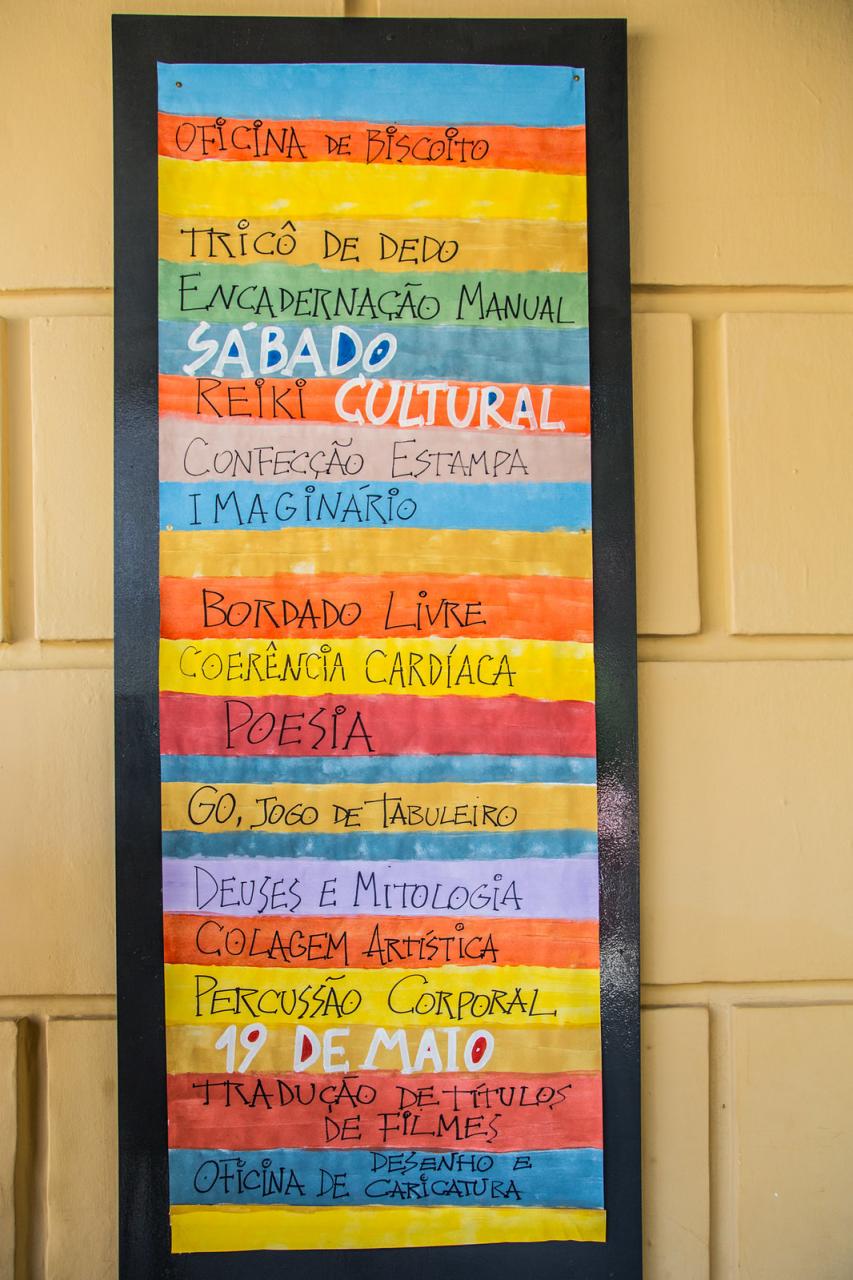 OFICINA DE BISCOITO
TRICÔ DE DEDO
ENCADERNAÇÃO MANUAL
SÁBADO
REIKI CULTURAL
CONFECÇÃO ESTAMPA
IMAGINÁRIO
BORDADO LIVRE
COERÊNCIA CARDÍACA
POESIA
GO, JOGO DE TABULEIRO
DEUSES E MITOLOGIA
COLAGEM ARTÍSTICA
PERCUSSÃO CORPORAL
19 DE MAIO
TRADUÇÃO DE TÍTULOS
DE FILMES
OFICINA DE DESENHO E
CARICATURA